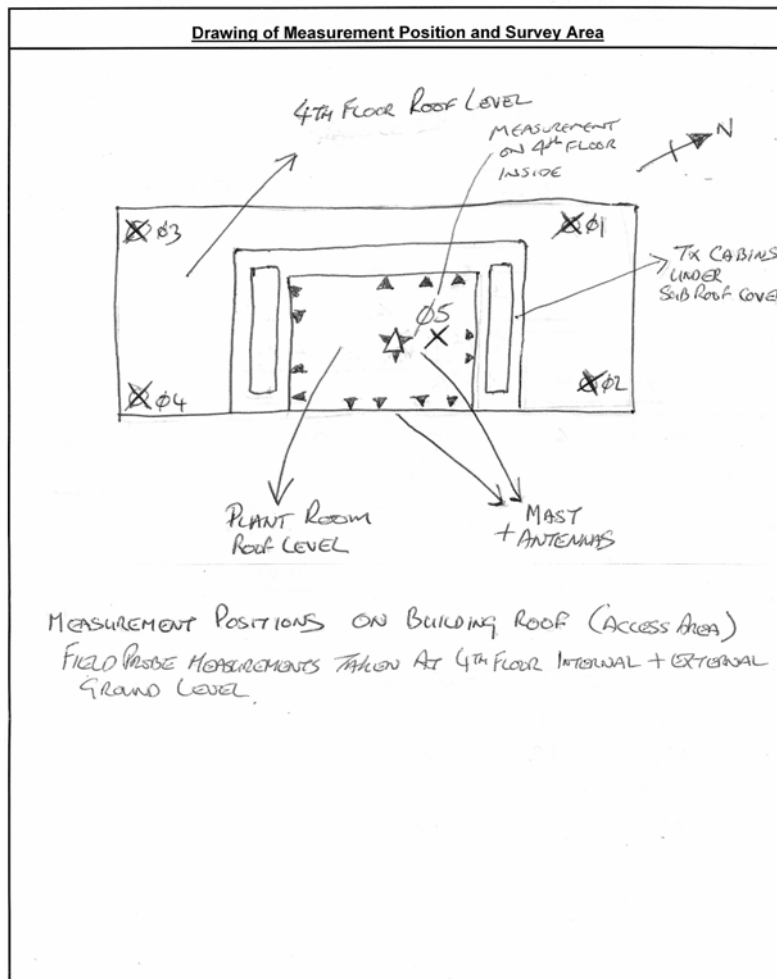 Drawing of Measurement Position and Survey Area
4TH FLOOR ROOF LEVEL
MEASUREMENT
ON 4th FLOOR
INSIDE
N
Ø3
Ø1
TX CABINS
UNDER
SUB ROOF COVER
Ø5
Ø4
Ø2
PLANT ROOM
ROOF LEVEL
MAST
+ ANTENNAS
MEASUREMENT POSITIONS ON BUILDING ROOF (ACCESS AREA)
FIELD PROBE MEASUREMENTS TAKEN AT 4TH FLOOR INTERNAL + EXTERNAL
GROUND LEVEL.